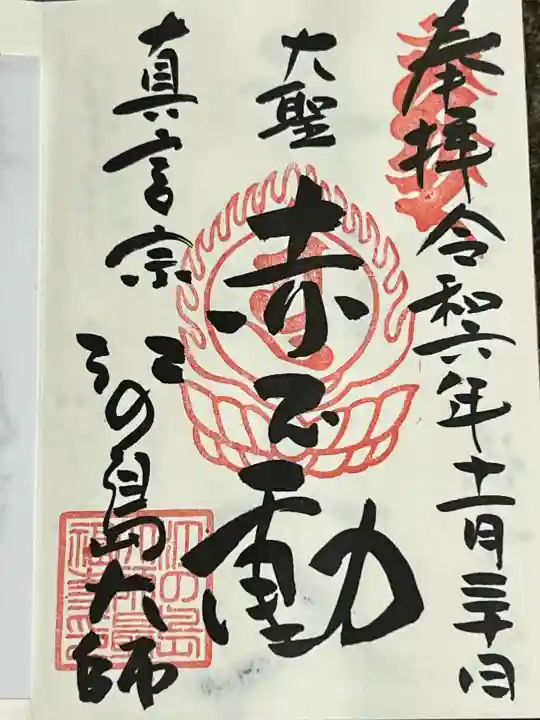 奉拝 令和六年十一月三十日
大聖
赤不動
真言宗
江の島大師